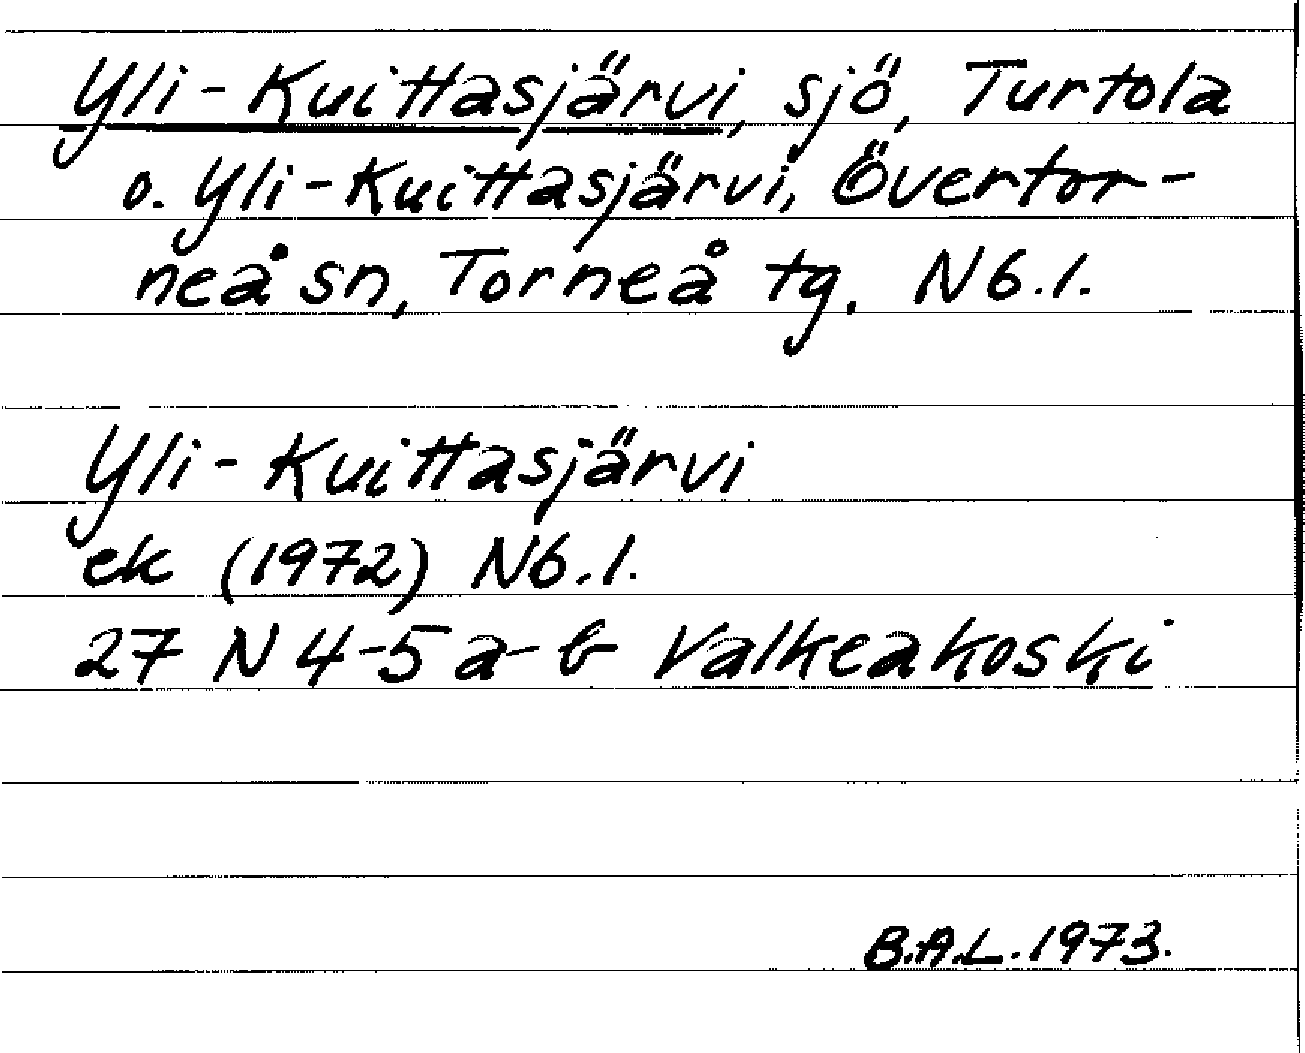 Yli-Kuittasjärvi, sjö, Turtola
o. Yli-Kuittasjärvi, Övertor-
neå sn, Torneå tg. N6.1.
Yli-Kuittasjärvi
ek (1972) N6.1.
27 N 4-5 a-b Valkeakoski
B.A.L. 1973.